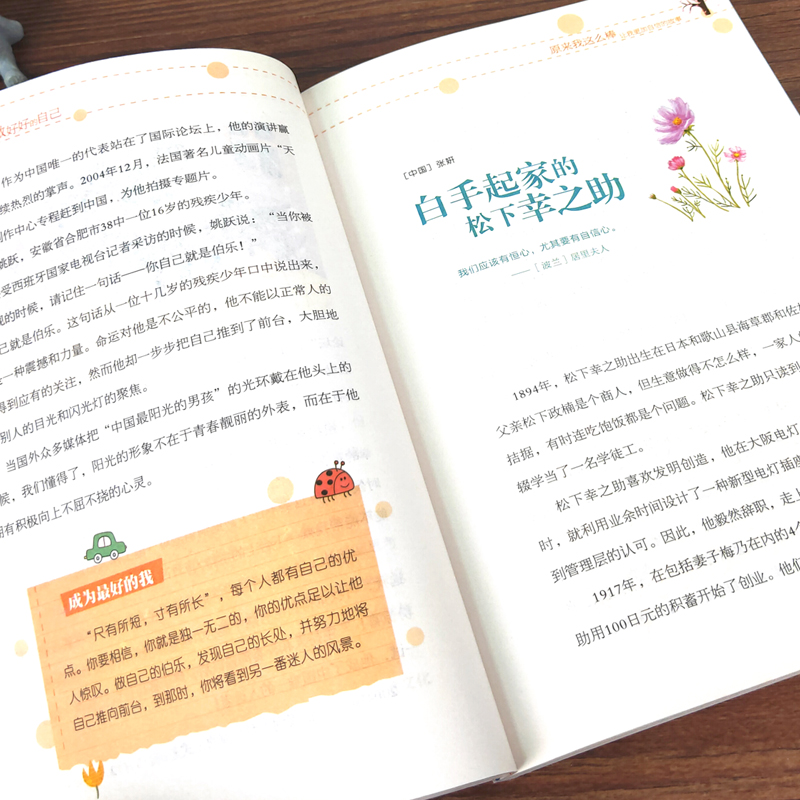 做好好的自己
作为中国唯一的代表站在了国际论坛上，他的演讲赢
续热烈的掌声。2004年12月，法国著名儿童动画片“天
制作中心专程赶到中国，为他拍摄专题片。
姚跃，安徽省合肥市38中一位16岁的残疾少年。
受西班牙国家电视台记者采访的时候，姚跃说：“当你被
的时候，请记住一句话——你自己就是伯乐！”
己就是伯乐。这句话从一位十几岁的残疾少年口中说出来，
一种震撼和力量。命运对他是不公平的，他不能以正常人的
得到应有的关注，然而他却一步步把自己推到了前台，大胆地
别人的目光和闪光灯的聚焦。
当国外众多媒体把“中国最阳光的男孩”的光环戴在他头上的
候，我们懂得了，阳光的形象不在于青春靓丽的外表，而在于他
有积极向上不屈不挠的心灵。
成为最好的我
“尺有所短，寸有所长”，每个人都有自己的优
点。你要相信，你就是独一无二的，你的优点足以让他
人惊叹。做自己的伯乐，发现自己的长处，并努力地将
自己推向前台，到那时，你将看到另一番迷人的风景。
原来我这么棒
［中国］张妍
白手起家的
松下幸之助
我们应该有恒心，尤其要有自信心。
——［波兰］居里夫人
1894年，松下幸之助出生在日本和歌山县海草郡和佐
父亲松下政楠是个商人，但生意做得不怎么样，一家人
拮据，有时连吃饱饭都是个问题。松下幸之助只读到
辍学当了一名学徒工。
松下幸之助喜欢发明创造，他在大阪电灯
时，就利用业余时间设计了一种新型电灯插座
到管理层的认可。因此，他毅然辞职，走上
1917年，在包括妻子梅乃在内的4个
助用100日元的积蓄开始了创业。他们